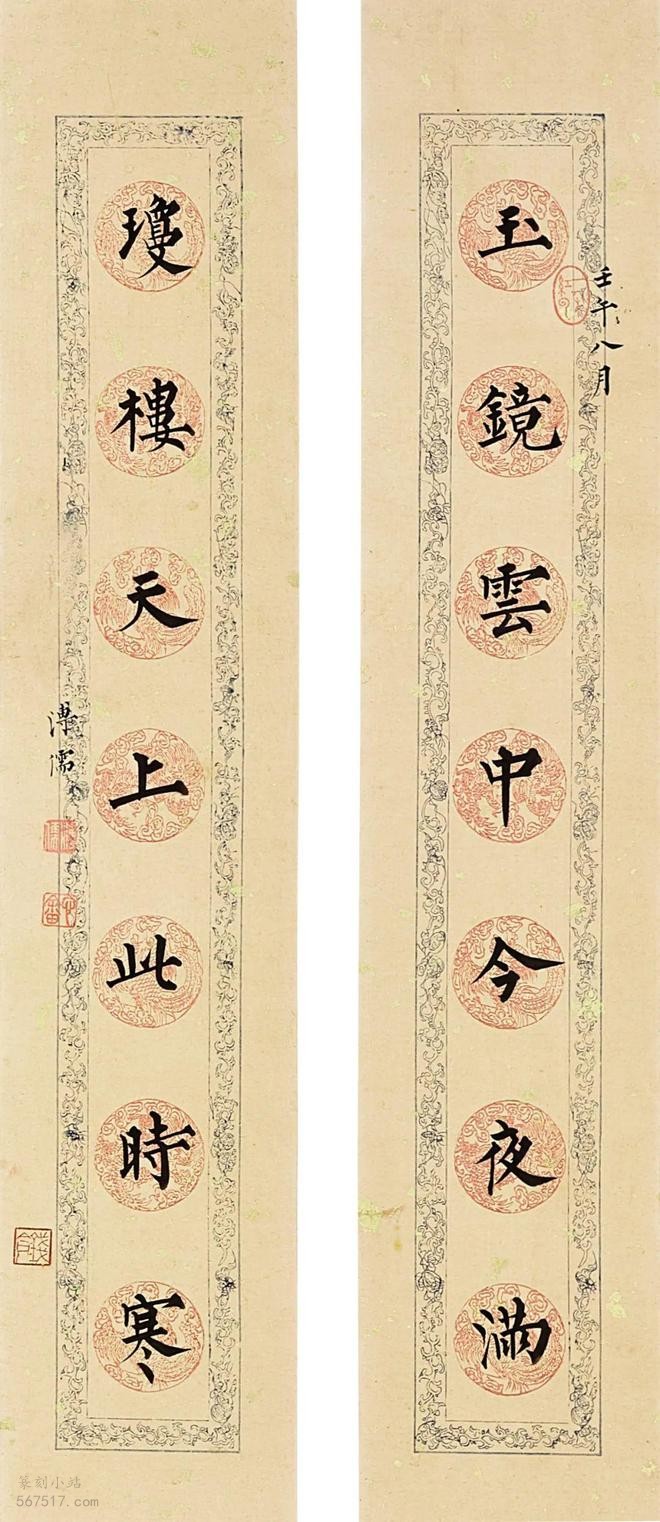 壬午八月
玉鏡雲中今夜滿
瓊樓天上此時寒
溥儒
篆刻小站
567517.com